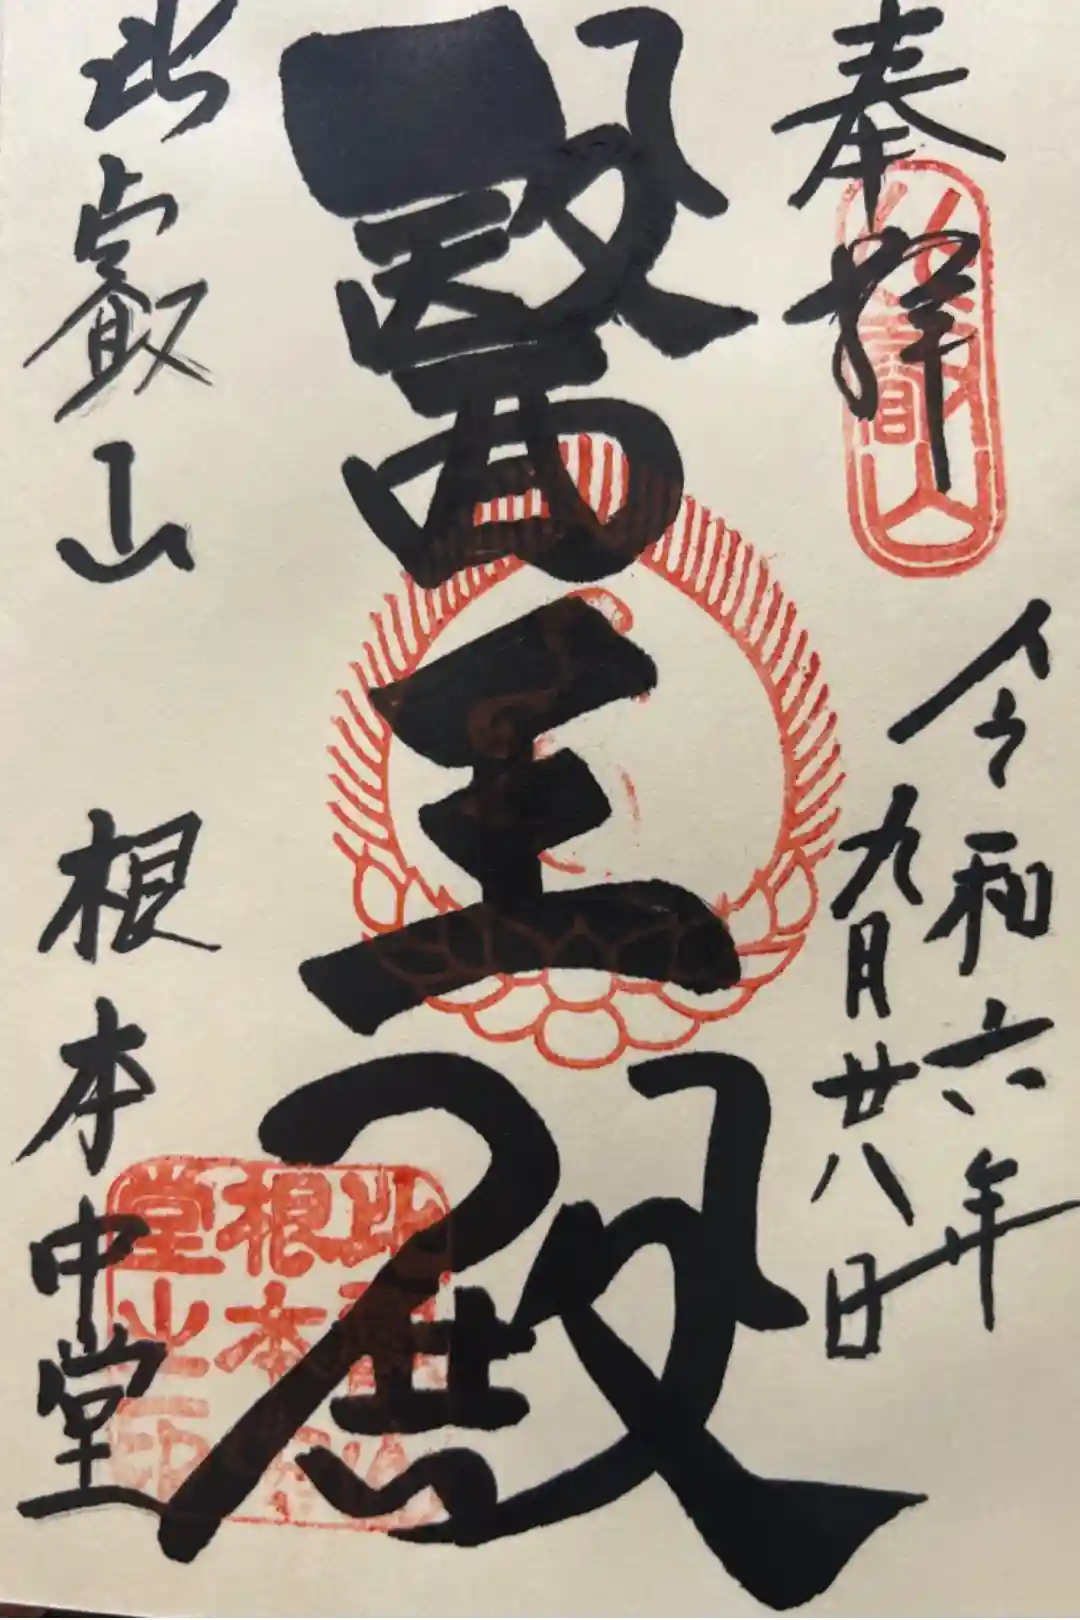 奉拜
令和六年
九月廿八日
比叡山
醫王殿
比叡山 根本中堂
比叡山
根本中
堂之印